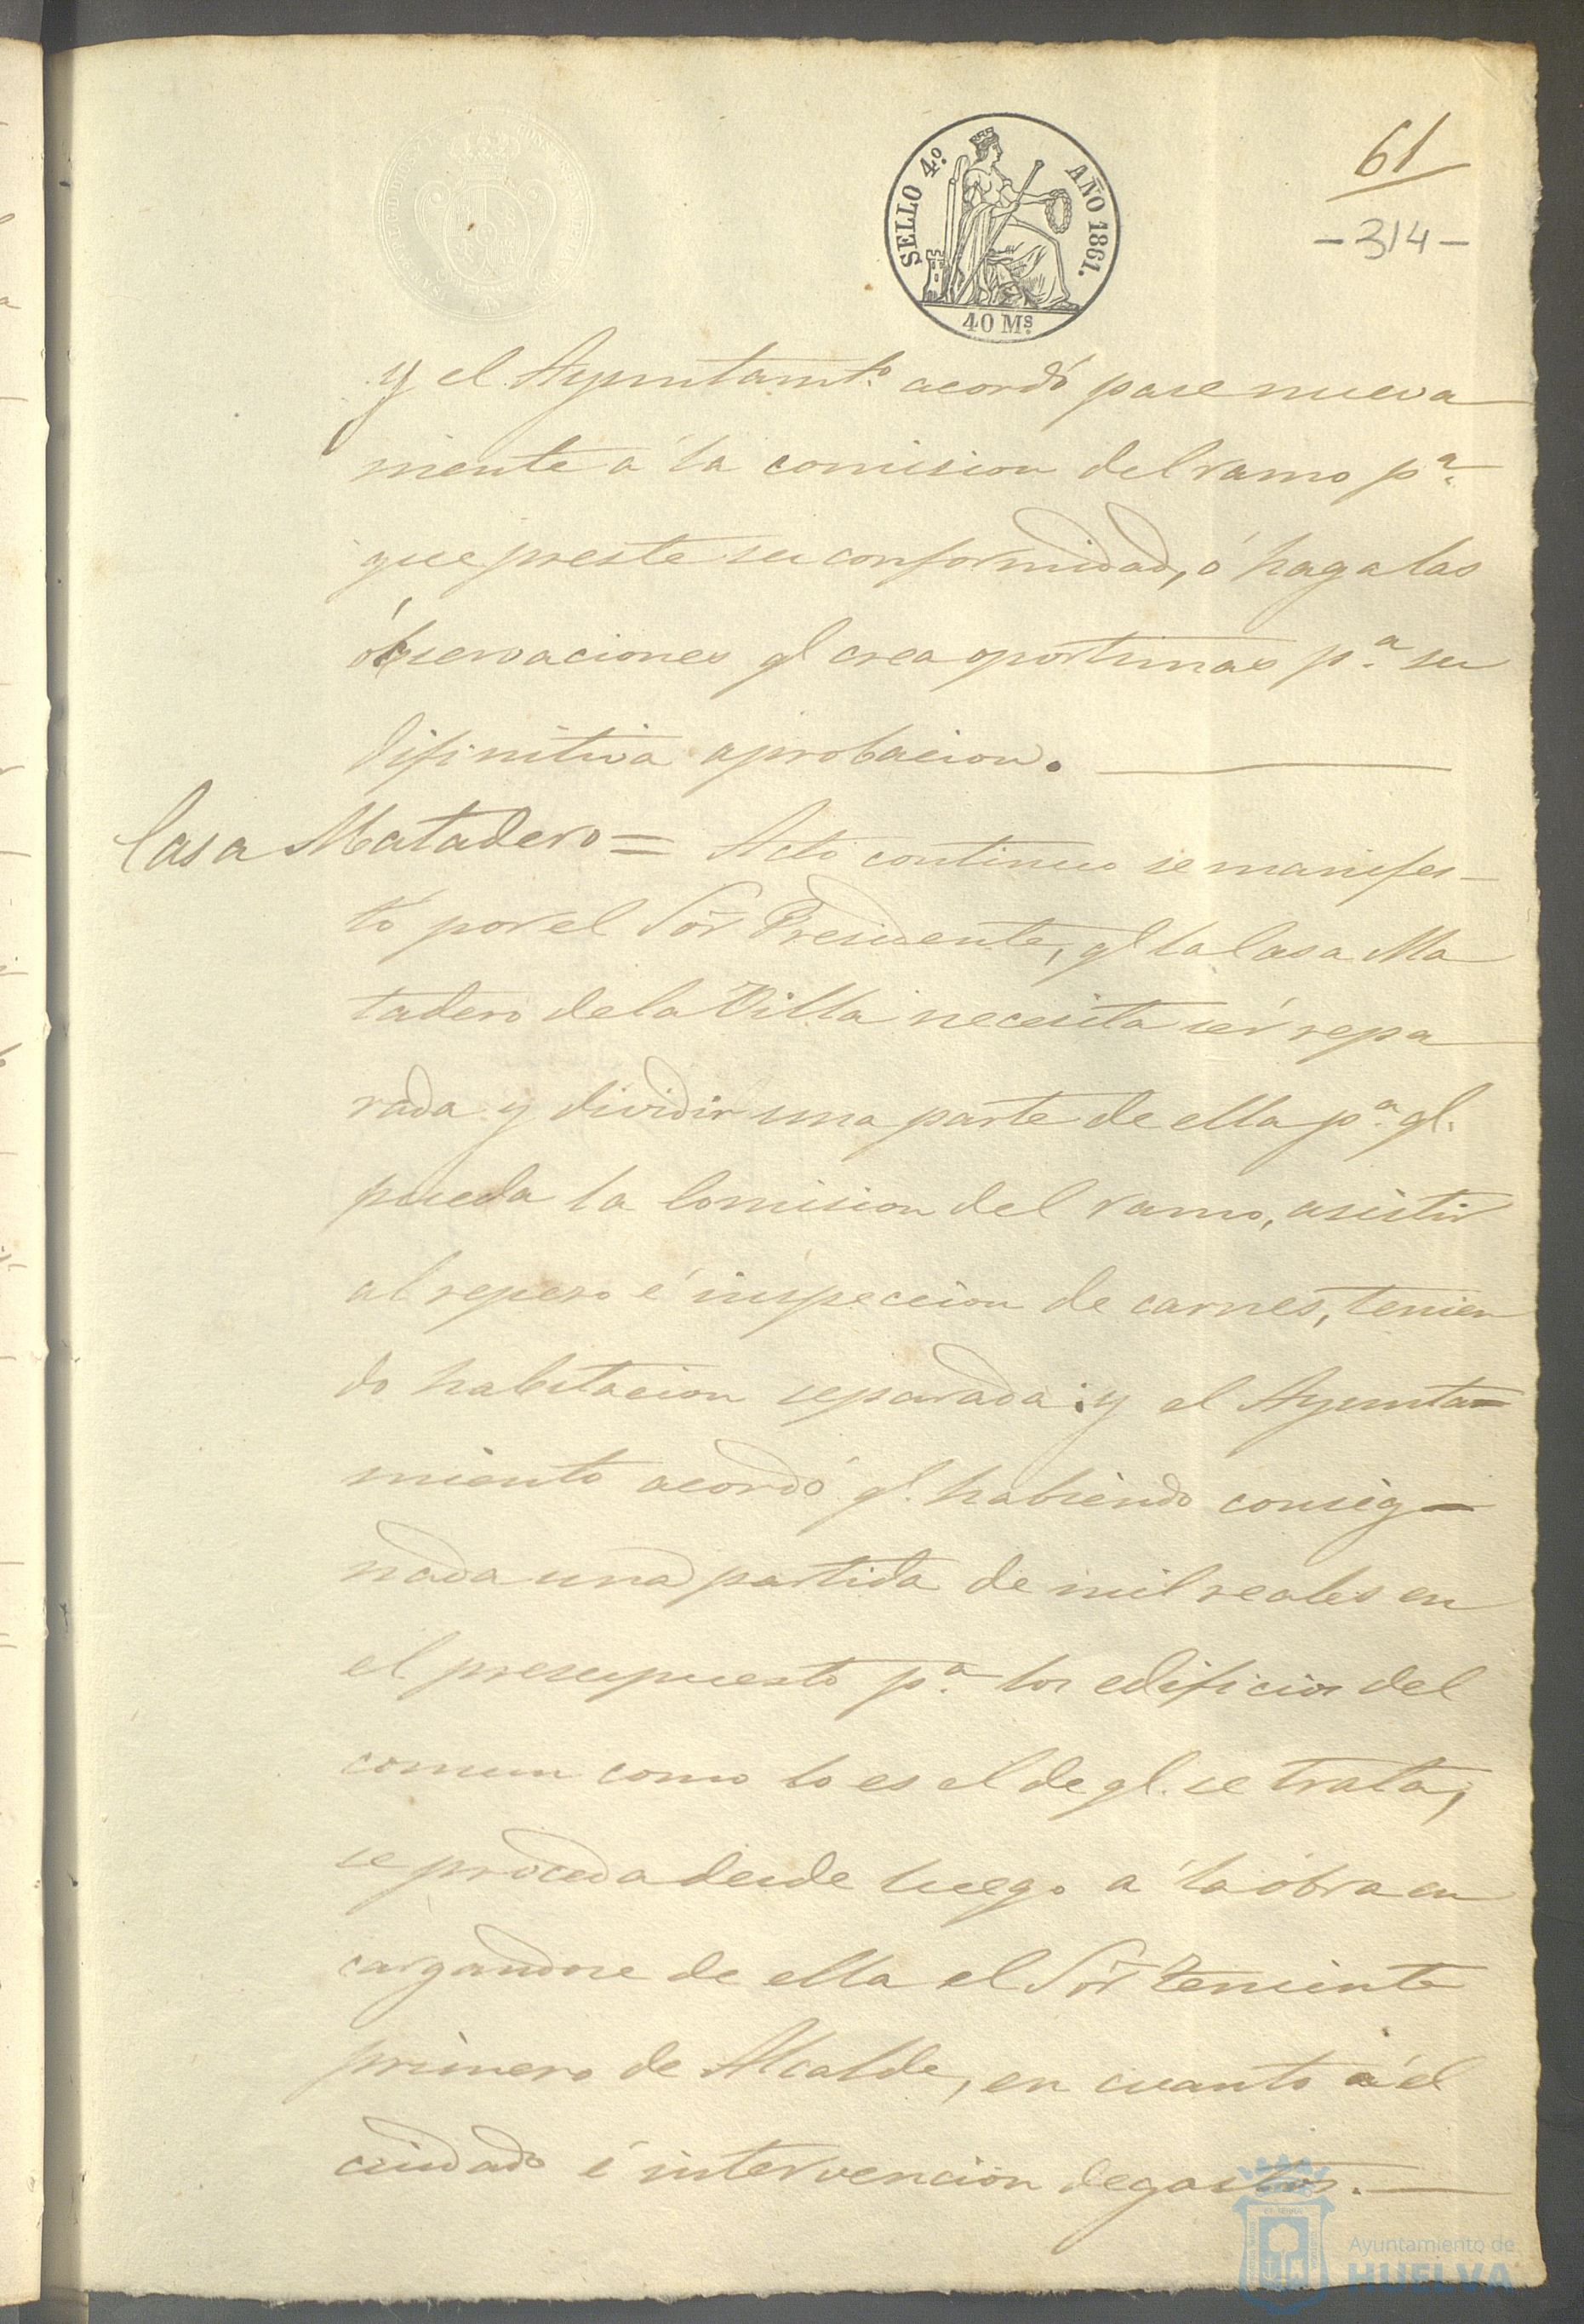 SELLO 4º. AÑO 1861.
40 Ms.
61
-314-
y el Ayuntamto. acordó pase nueva
mente á la comision del ramo pa.
que preste su conformidad, ó haga las
observaciones ql crea oportunas pa. su
difinitiva aprobacion.
Casa Matadero = Acto continuo se manifes-
tó por el Sor Presidente, ql la Casa Ma
tadero de la Villa necesita sér repa
rada y dividir una parte de ella pa. ql.
pueda la Comision del ramo, asistir
al repeso é inspeccion de carnes, tenien
do habitacion separada: y el Ayunta=
miento acordó ql. habiendo consig=
nada una partida de mil reales en
el presupuesto pa. los edificios del
comun como lo es el de ql. se trata,
se proceda desde luego á la óbra en
cargandose de ella el Sor Teniente
primero de Alcalde, en cuanto á el
cuidado é intervencion de gastos.
Ayuntamiento de
HUELVA